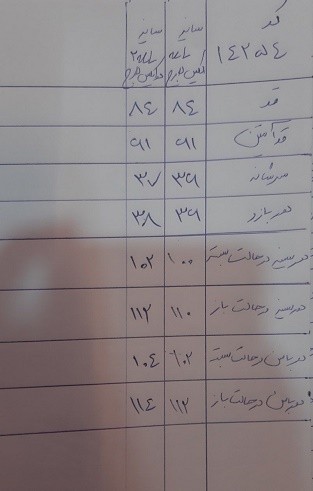 کد ۱۴۲۵۴ سایز سایز
قد ۸۴ ۸۴
قد آستین ۹۱ ۹۱
سرشانه ۳۹ ۳۷
دور بازو ۳۹ ۳۸
دور سینه در حالت بسته ۱۰۰ ۱۰۲
دور سینه در حالت باز ۱۱۰ ۱۱۲
دور باسن در حالت بسته ۱۰۲ ۱۰۴
دور باسن در حالت باز ۱۱۲ ۱۱۴